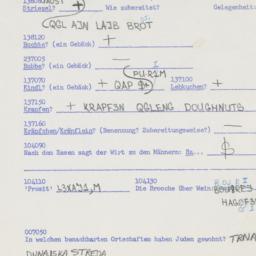 Striesel? Wie zubereitet? Gelegenheit:
(QGL AJN LAJB BROT
138120
Bochte? (ein Gebäck) +
237003
Bobbe? (ein Gebäck) —
(PURIM
137070 137100
Kindl? (ein Gebäck) + QAP $+) Lebkuchen? +
137150
Krapfen? + KRAPF3N QGLENG DOUGHNUTS
137160
Kräpfchen/Kräpflein? (Benennung? Zubereitungsweise?) —
104090
Nach dem Essen sagt der Wirt zu den Männern: Ra... $
104110 104130
'Prosit' L3XAJ1,M Die Brooche über Wein:
HAGOF3N
007050
In welchen benachbarten Ortschaften haben Juden gewohnt? TRNA
DUNAJSKA STREDA